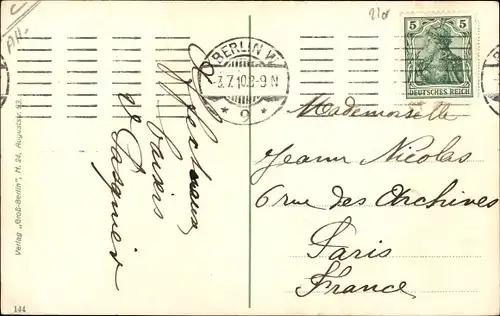 210
BERLIN W.
3.7.10.8-9 N
* 9 *
5 5
DEUTSCHES REICH
Affectueux
baisers
Mademoiselle
Jeanne Nicolas
6 rue des Archives
Paris
France
Verlag „Groß-Berlin", N. 24, Auguststr. 43.
144